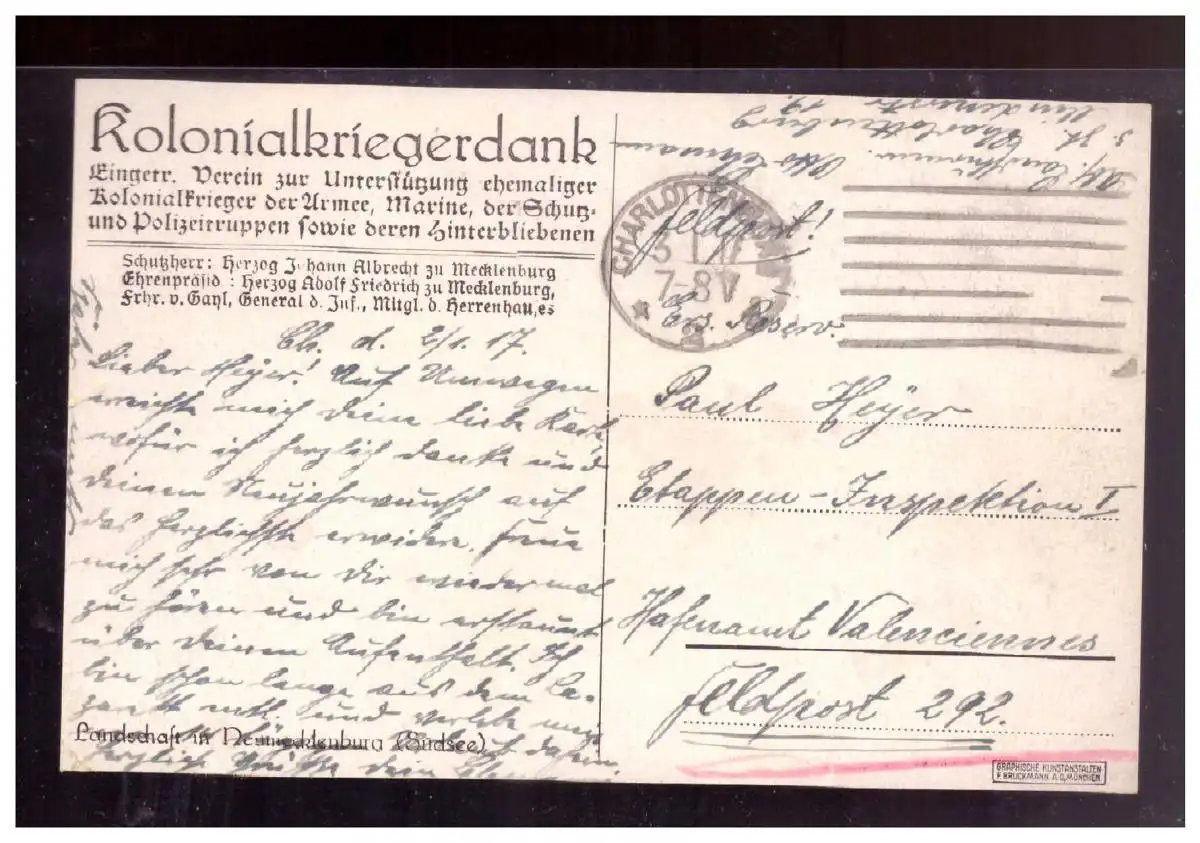 Kolonialkriegerdank
Eingetr. Verein zur Unterstützung ehemaliger
Kolonialkrieger der Armee, Marine, der Schutz-
und Polizeitruppen sowie deren Hinterbliebenen
Schutzherr: Herzog Johann Albrecht zu Mecklenburg
Ehrenpräsid.: Herzog Adolf Friedrich zu Mecklenburg,
Frhr. v. Gayl, General d. Inf., Mitgl. d. Herrenhauses
Ch. d. 2/1. 17.
Lieber Heyer! Auf Umwegen
erreichte mich deine liebe Karte
wofür ich herzlich danke und
deinen Neujahrwunsch auf
das herzlichste erwidere. Freue
mich sehr von Dir wieder mal
zu hören und bin erstaunt
über deinen Aufenthalt. Ich
bin schon lange aus dem La-
zarett entl. und verlebe
Landschaft in Neumecklenburg (Südsee)
Otto
Charlottenburg
CHARLOTTENBURG
7-8 V
Feldpost!
Ers. Reserv.
Paul Heyer
Etappen-Inspektion I
Hafenamt Valenciennes
Feldpost 292.
GRAPHISCHE KUNSTANSTALTEN
F. BRUCKMANN A.G., MÜNCHEN